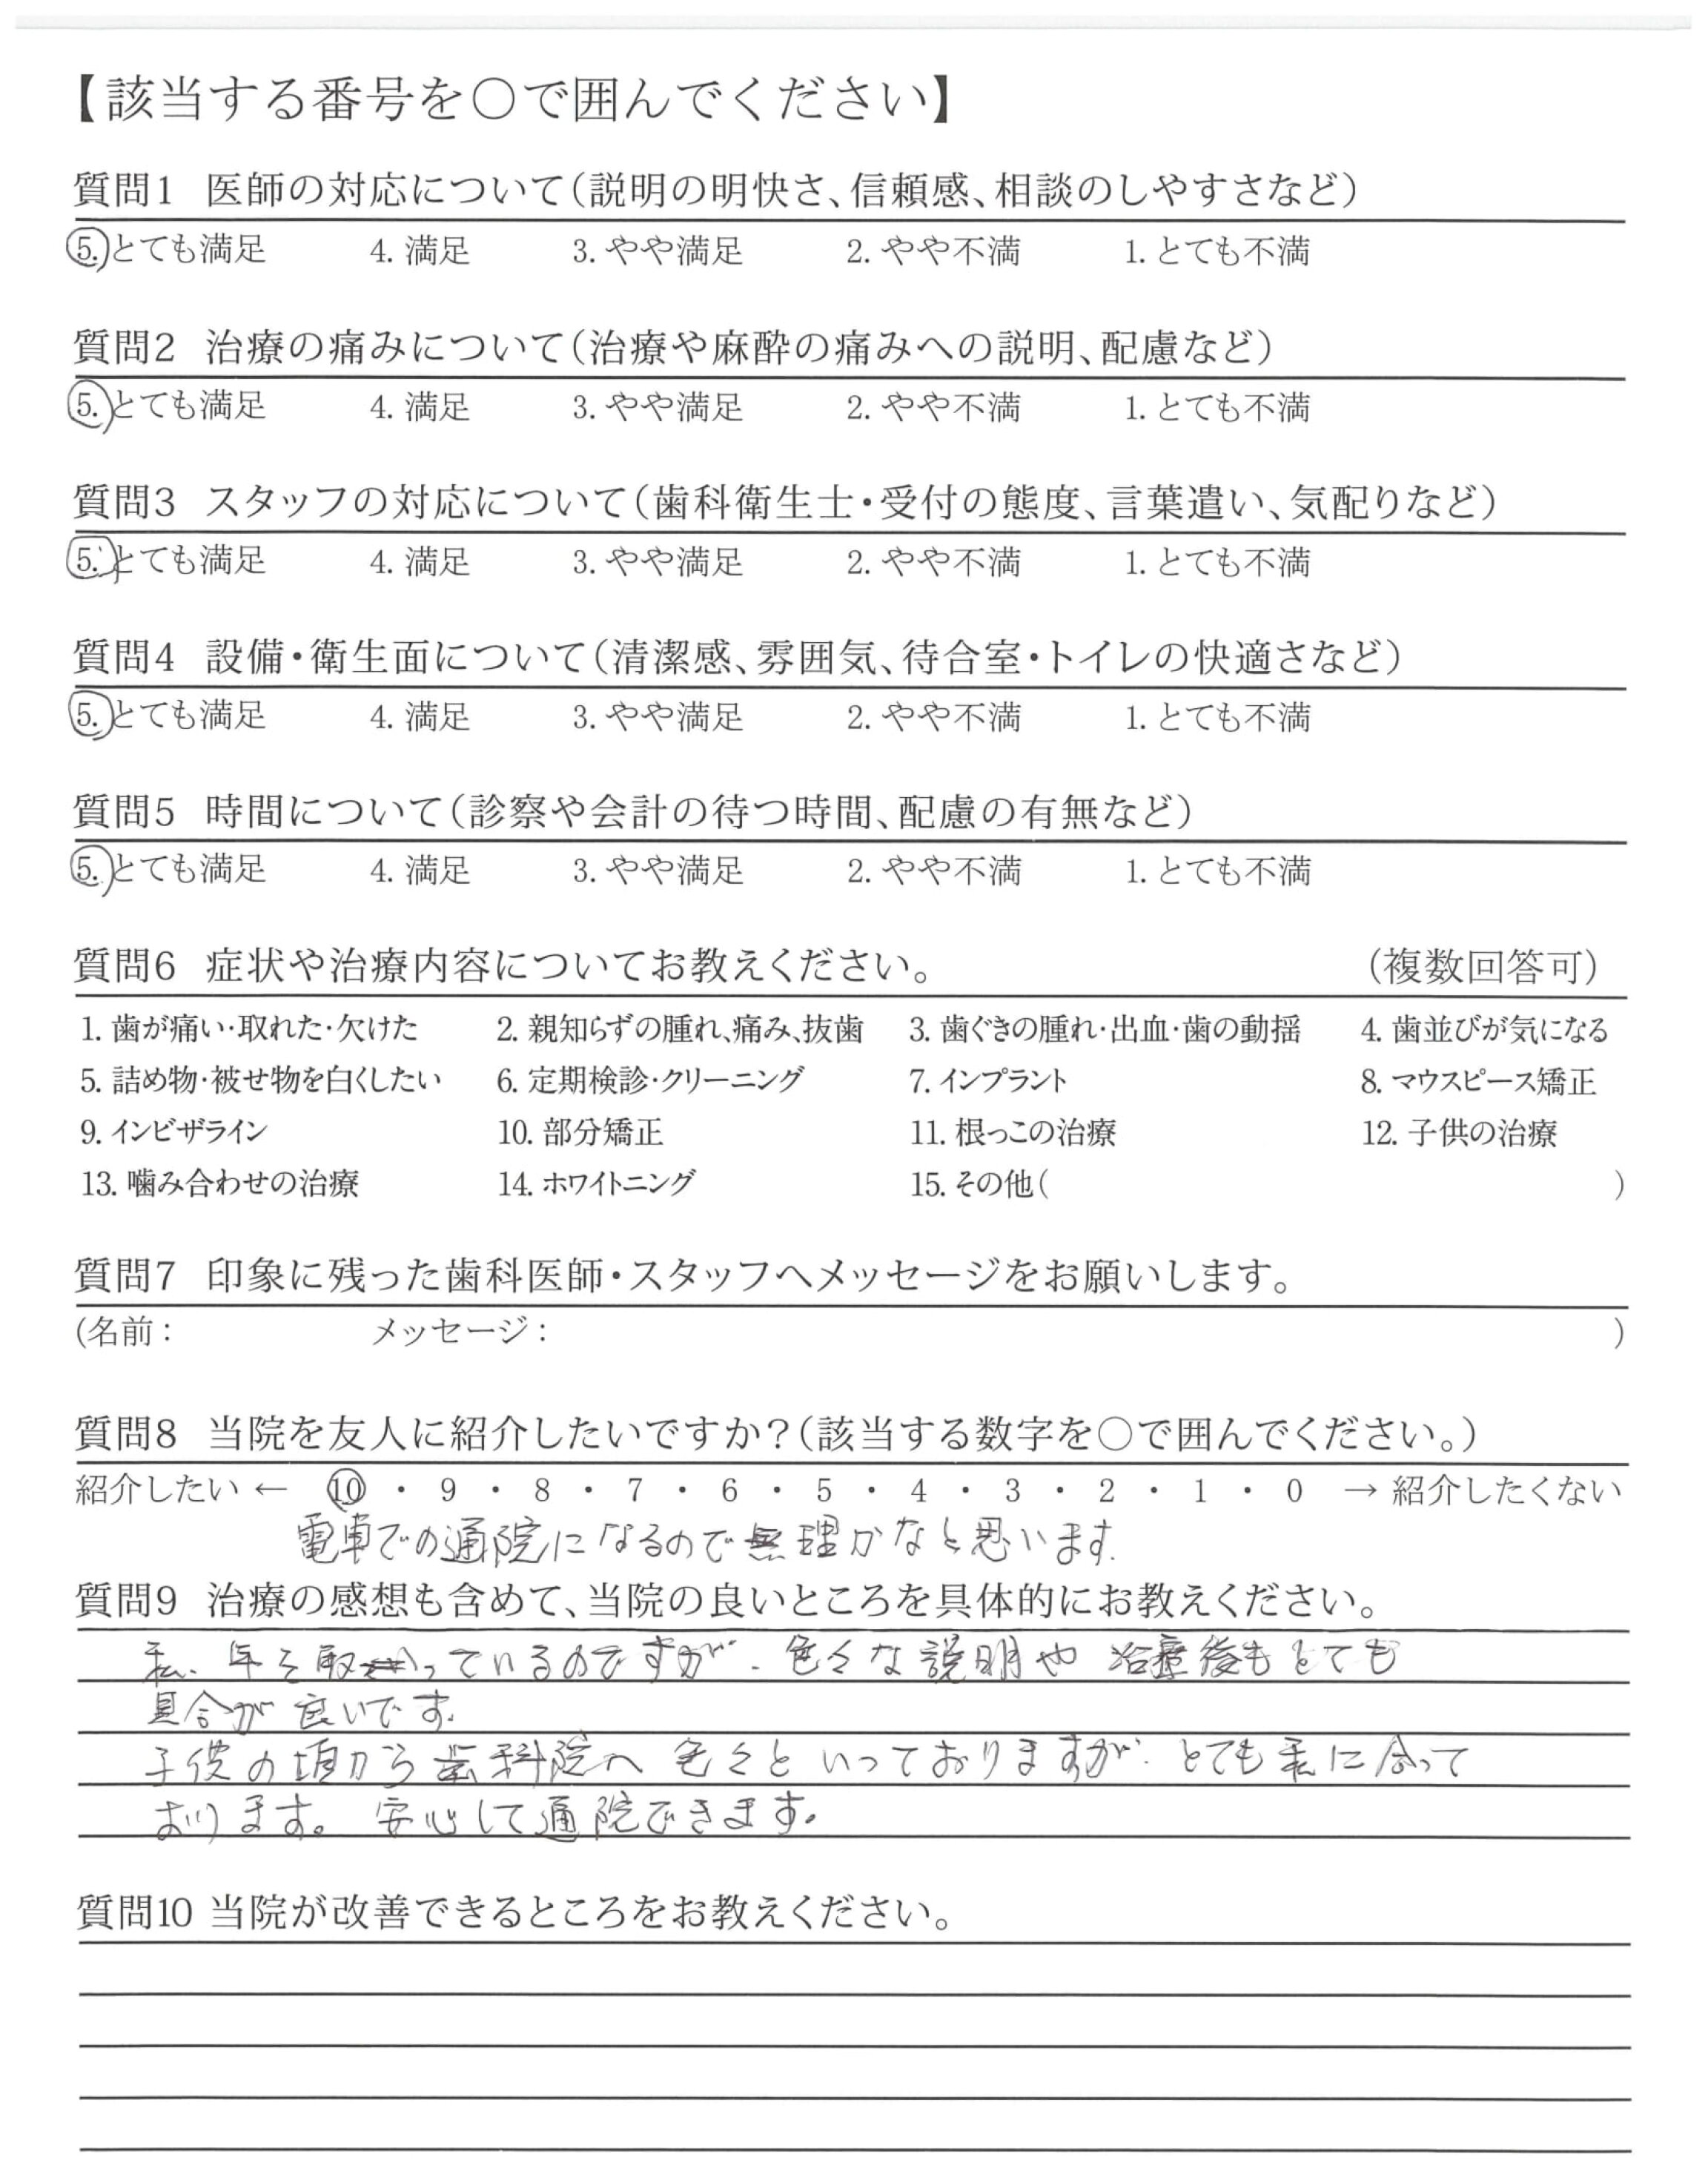 【該当する番号を〇で囲んでください】
質問1 医師の対応について(説明の明快さ、信頼感、相談のしやすさなど)
5. とても満足 4. 満足 3. やや満足 2. やや不満 1. とても不満
質問2 治療の痛みについて(治療や麻酔の痛みへの説明、配慮など)
5. とても満足 4. 満足 3. やや満足 2. やや不満 1. とても不満
質問3 スタッフの対応について(歯科衛生士・受付の態度、言葉遣い、気配りなど)
5. とても満足 4. 満足 3. やや満足 2. やや不満 1. とても不満
質問4 設備・衛生面について(清潔感、雰囲気、待合室・トイレの快適さなど)
5. とても満足 4. 満足 3. やや満足 2. やや不満 1. とても不満
質問5 時間について(診察や会計の待つ時間、配慮の有無など)
5. とても満足 4. 満足 3. やや満足 2. やや不満 1. とても不満
質問6 症状や治療内容についてお教えください。 (複数回答可)
1. 歯が痛い・取れた・欠けた 2. 親知らずの腫れ、痛み、抜歯 3. 歯ぐきの腫れ・出血・歯の動揺 4. 歯並びが気になる
5. 詰め物・被せ物を白くしたい 6. 定期検診・クリーニング 7. インプラント 8. マウスピース矯正
9. インビザライン 10. 部分矯正 11. 根っこの治療 12. 子供の治療
13. 噛み合わせの治療 14. ホワイトニング 15. その他( )
質問7 印象に残った歯科医師・スタッフへメッセージをお願いします。
(名前: メッセージ: )
質問8 当院を友人に紹介したいですか?(該当する数字を〇で囲んでください。)
紹介したい ← 10 ・ 9 ・ 8 ・ 7 ・ 6 ・ 5 ・ 4 ・ 3 ・ 2 ・ 1 ・ 0 → 紹介したくない
電車での通院になるので無理かなと思います.
質問9 治療の感想も含めて、当院の良いところを具体的にお教えください。
私、年を取っているのですが、色々な説明や 治療後もとても
具合が良いです.
子供の頃から歯科院へ色々といっておりますが、とても私に合って
おります。安心して通院できます。
質問10 当院が改善できるところをお教えください。